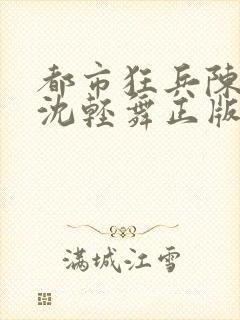 都市狂兵陳
沈輕舞正版
滿城江雪